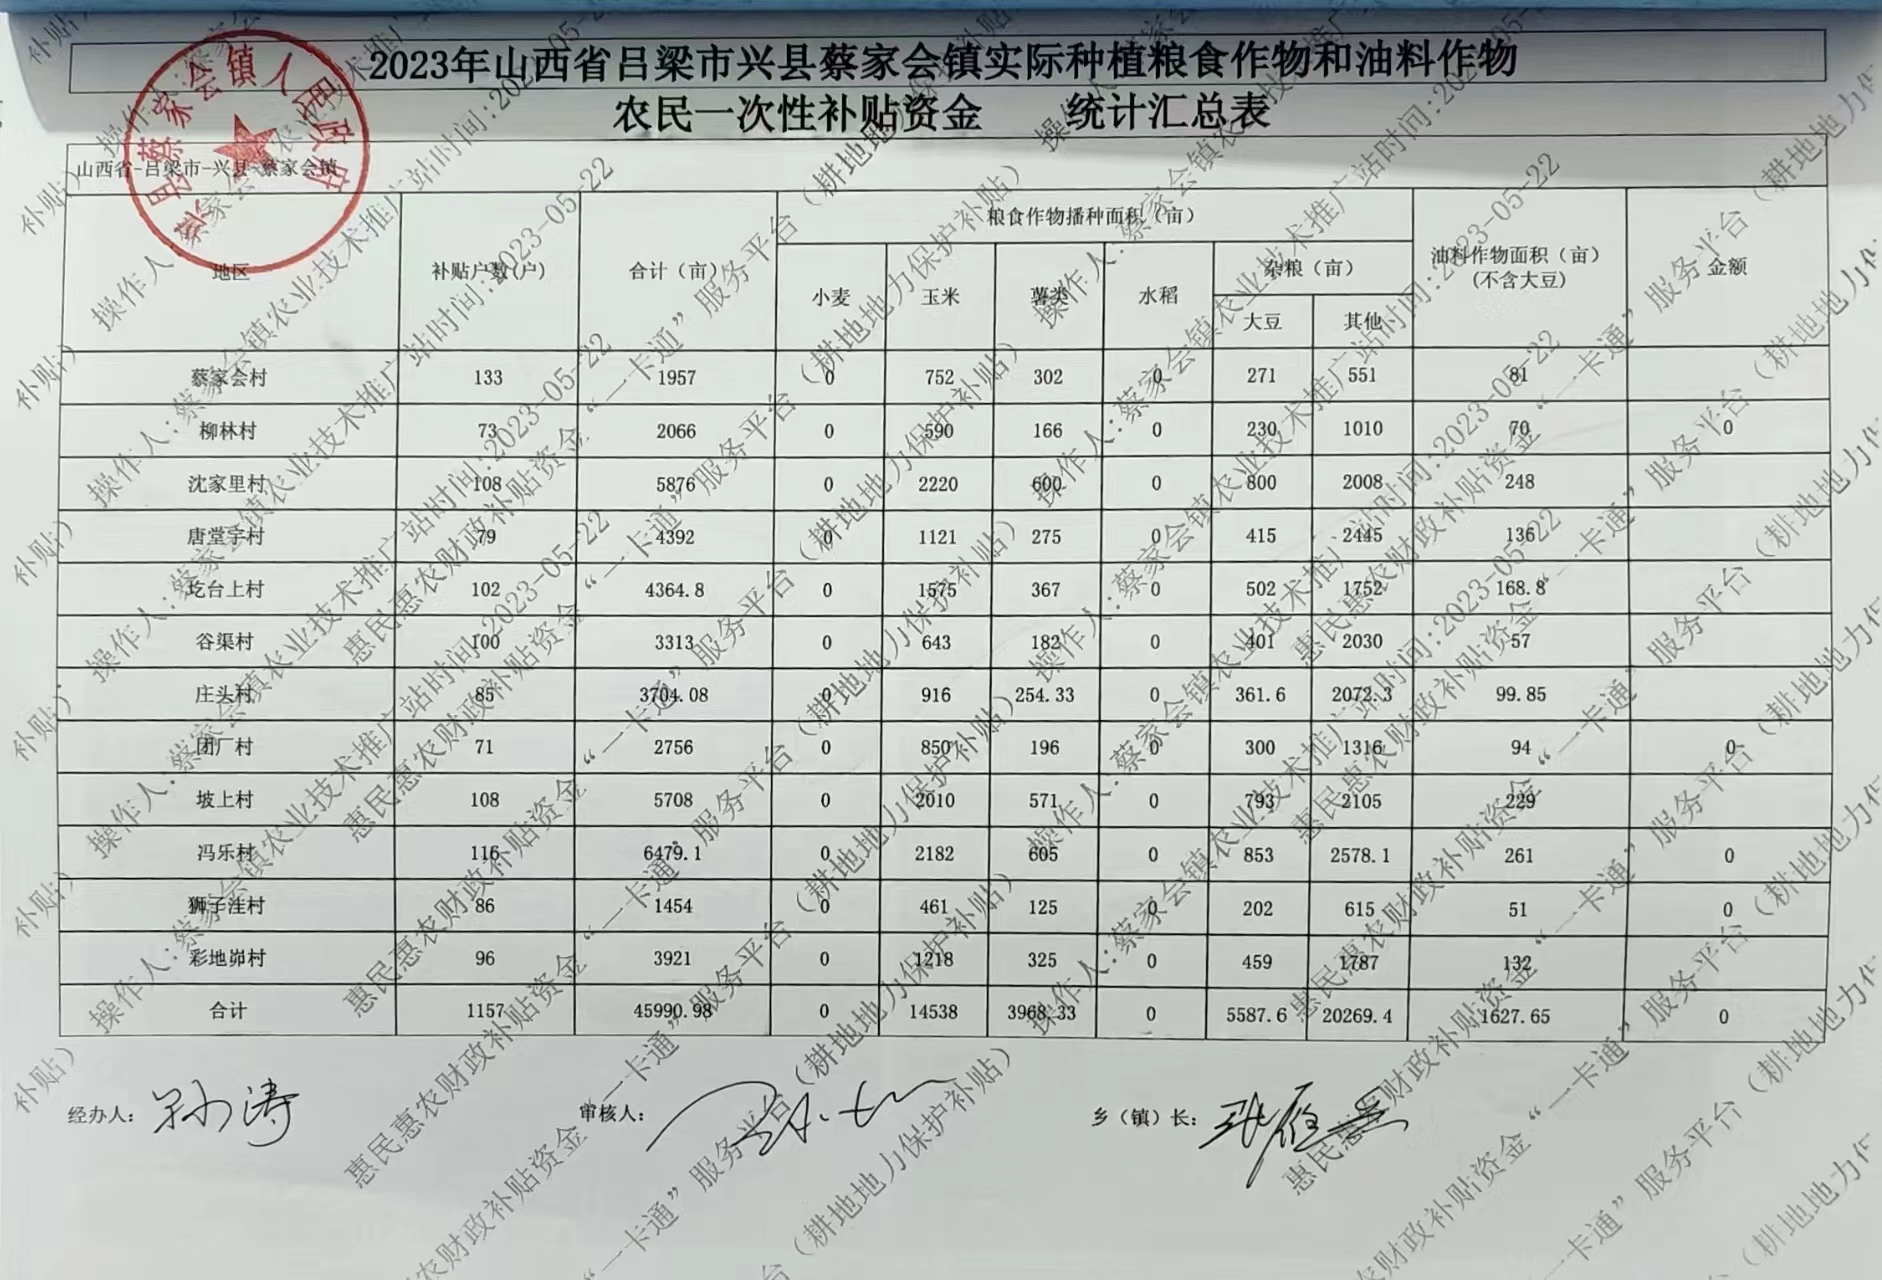 2023年山西省吕梁市兴县蔡家会镇实际种植粮食作物和油料作物
农民一次性补贴资金 统计汇总表
山西省-吕梁市-兴县-蔡家会镇
地区 补贴户数(户) 合计（亩） 粮食作物播种面积（亩） 油料作物面积（亩）(不含大豆) 金额
小麦 玉米 薯类 水稻 杂粮（亩）
大豆 其他
蔡家会村 133 1957 0 752 302 0 271 551 81
柳林村 73 2066 0 590 166 0 230 1010 70 0
沈家里村 108 5876 0 2220 600 0 800 2008 248
唐堂宇村 79 4392 0 1121 275 0 415 2445 136
圪台上村 102 4364.8 0 1575 367 0 502 1752 168.8
谷渠村 100 3313 0 643 182 0 401 2030 57
庄头村 85 3704.08 0 916 254.33 0 361.6 2072.3 99.85
团厂村 71 2756 0 850 196 0 300 1316 94 0
坡上村 108 5708 0 2010 571 0 793 2105 229
冯乐村 116 6479.1 0 2182 605 0 853 2578.1 261 0
狮子洼村 86 1454 0 461 125 0 202 615 51 0
彩地峁村 96 3921 0 1218 325 0 459 1787 132
合计 1157 45990.98 0 14538 3968.33 0 5587.6 20269.4 1627.65 0
经办人： 孙涛 审核人： 乡（镇）长：
兴县蔡家会镇人民政府
操作人:蔡家会镇农业技术推广站时间:2023-05-22
惠民惠农财政补贴资金“一卡通”服务平台（耕地地力保护补贴）